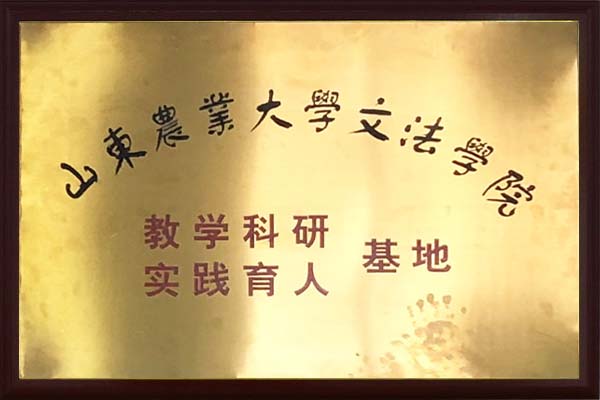 山東農業大學文法學院
教学科研
实践育人
基地